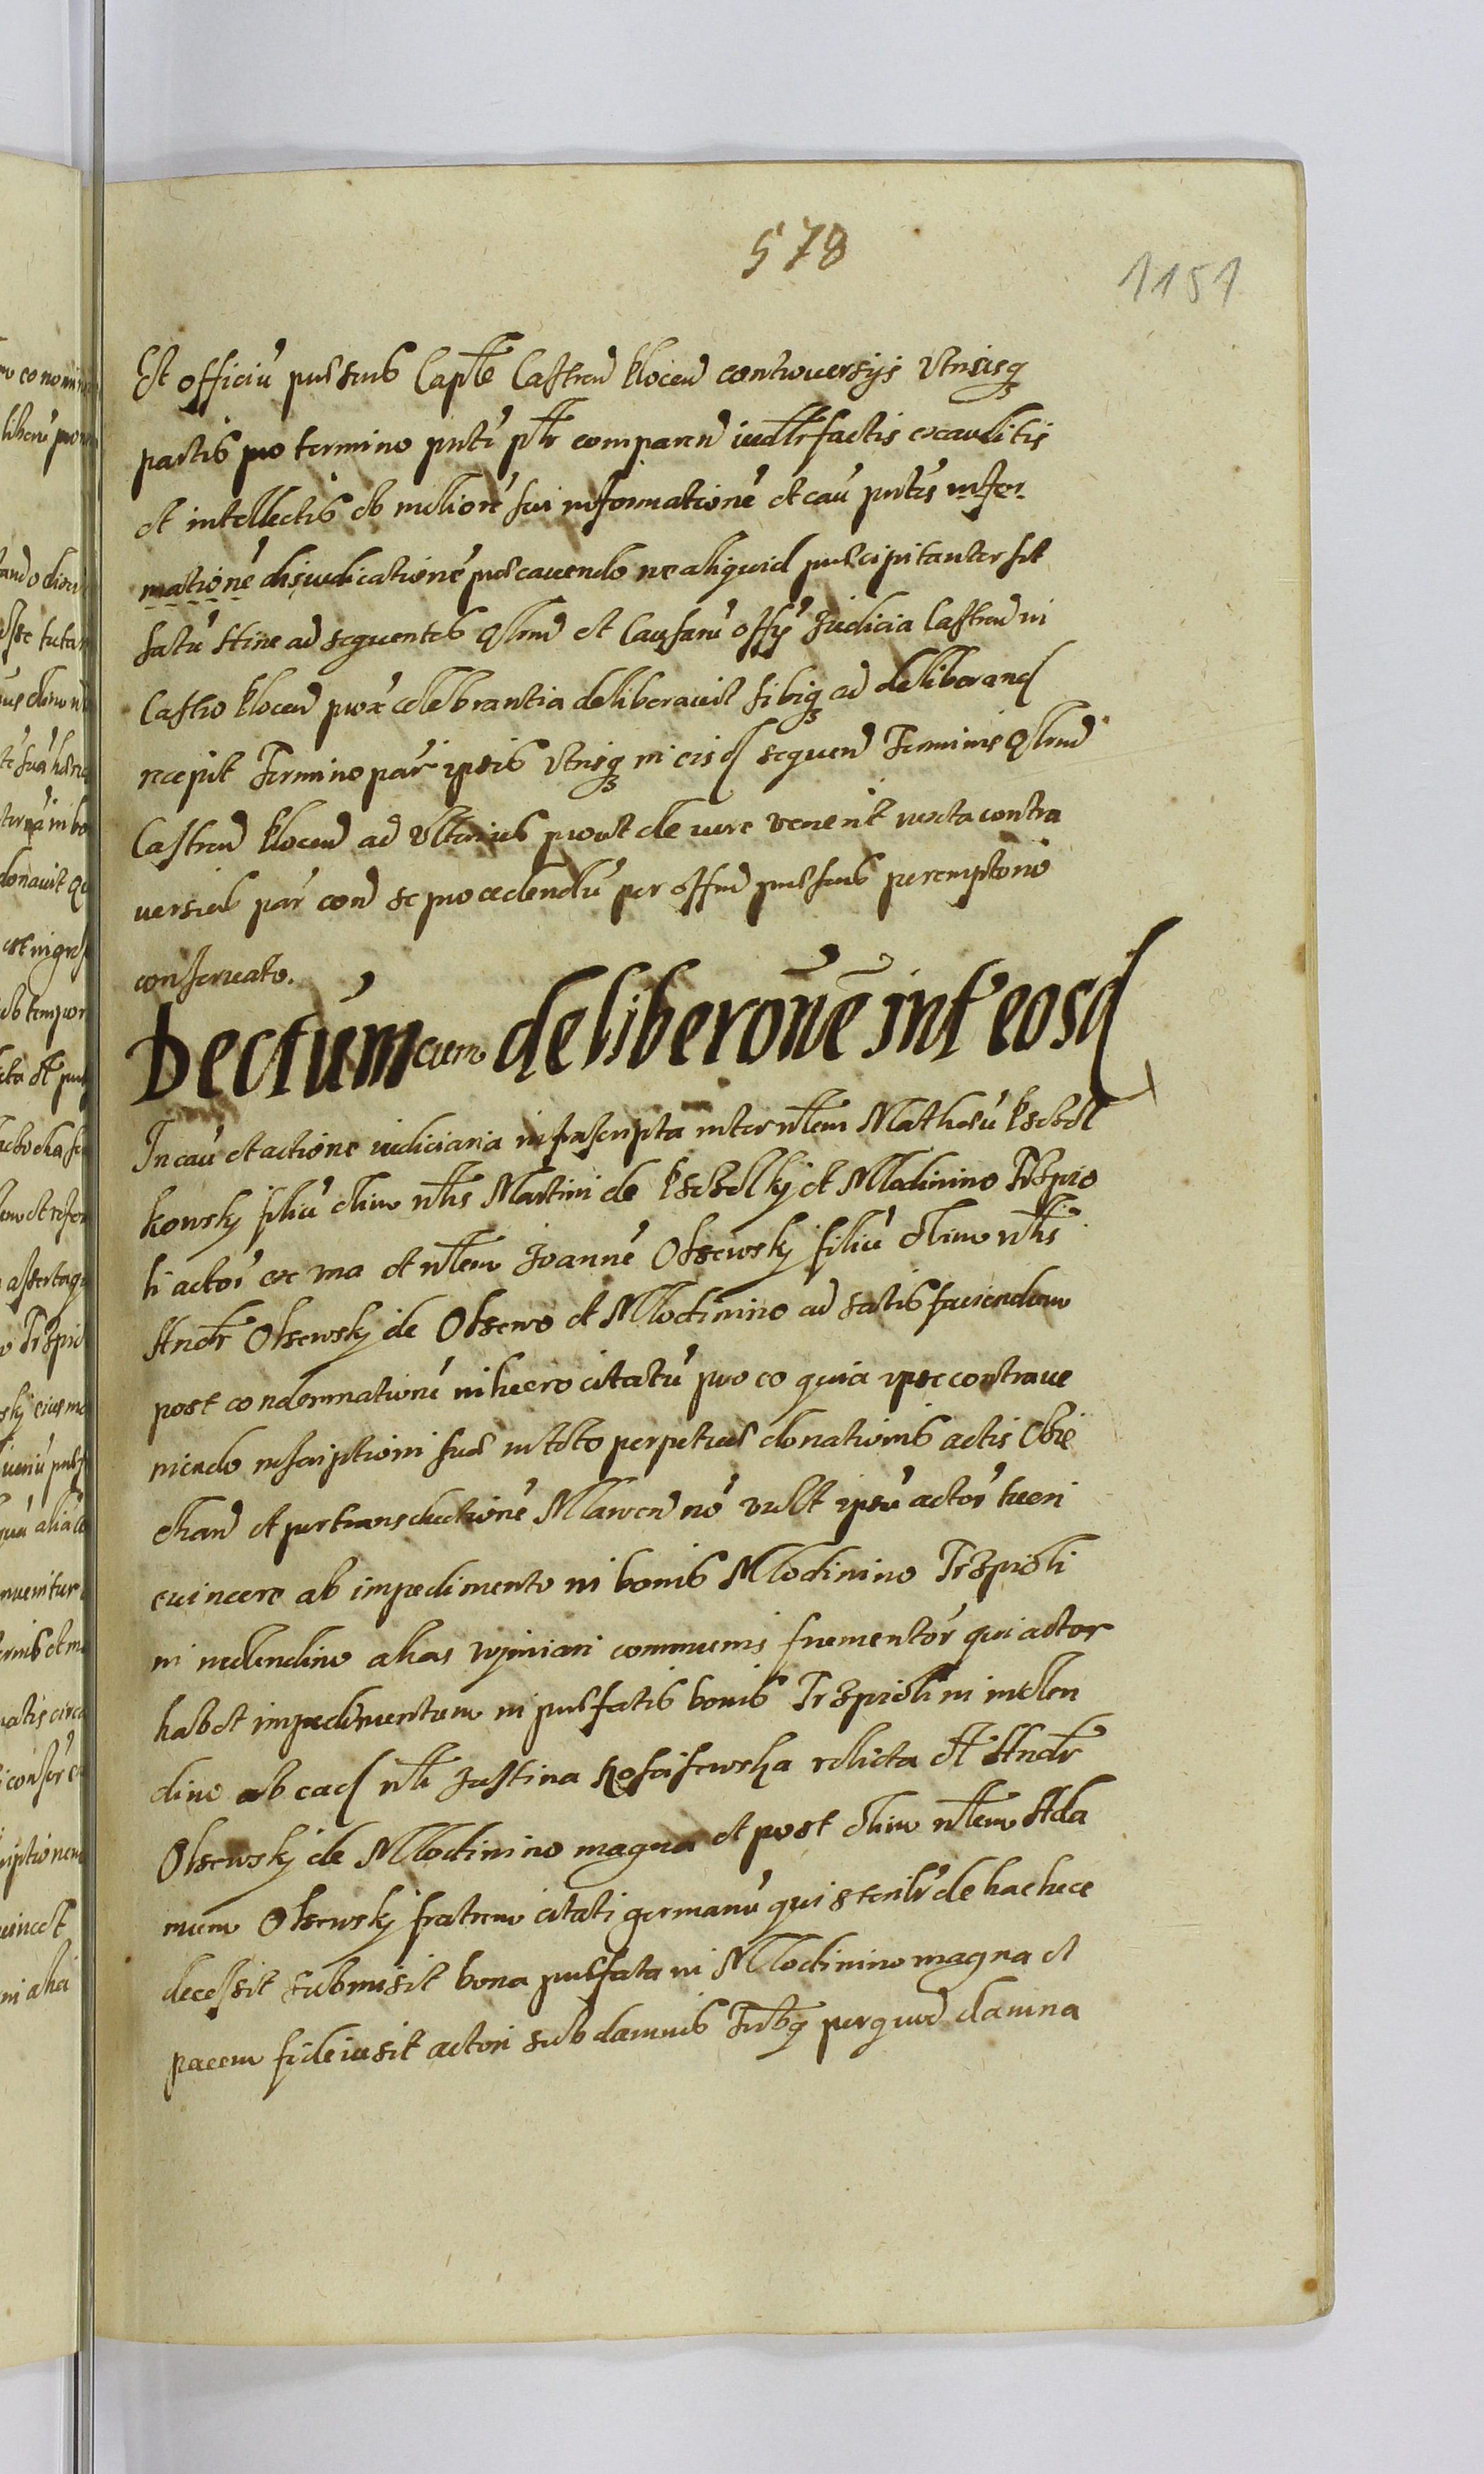 578
1151
Et officiũ præsens Capłle Castren Plocen controuersijs vtriusq3
partis pro termino pnti pltr comparen iudltr factis exauditis
et intellectis ob meliorẽ sui informationẽ et cau pntis infor
mationẽ disiudicationẽ præcauendo ne aliquid præcipitanter sit
factũ ad sequentes Qłrnd et Causarũ offŷ Judicia Castren in
Castro Plocen prox celebrantia deliberauit sibiq3 ad deliberand
recepit Termino par ipsis vtrisq3 in eisd sequen Terminis Qłrnd
Castren Plocen ad vlterius prout de iure venerit iuxta contra
uersias par cond se procedendũ per offnd præsens peremptorio
conseruato.
Dectum cum deliberoñe inť eosd
In cau et actione iudiciaria infrascripta inter nłlem Mathæũ
kowskj filiũ olim nłlis Martini de et Mlodinino Trzpio
li actoř ex vna et nłlem Joannẽ Olsewskj filiũ olim nłlis
Andř Olsewskj de Olsewo et Mlodinino ad satisfaciendum
post condemnationẽ in lucro citatũ pro eo quia ipse contraue
niendo inscriptioni suæ in toto perpetuæ donationis actis
chan et per transductionẽ Mlawen nõ vult ipsũ actoř tueri
euincere ab impedimento in bonis Mlodinino Trzpioli
in molendino alias communis frumentoř qui actor
habet impedimentum in præfatis bonis Trzpioli in molen
dino ab ead nłli Justina relicta ołł Andř
Olsewskj de Mlodinino magna et post olim nłlem Ada
mum Olsewskj fratrem citati germanũ qui steriłr de hac luce
decessit submisit bona præfata in Mlodinino magna et
pacem fideiusit actori sub damnis per quod damna